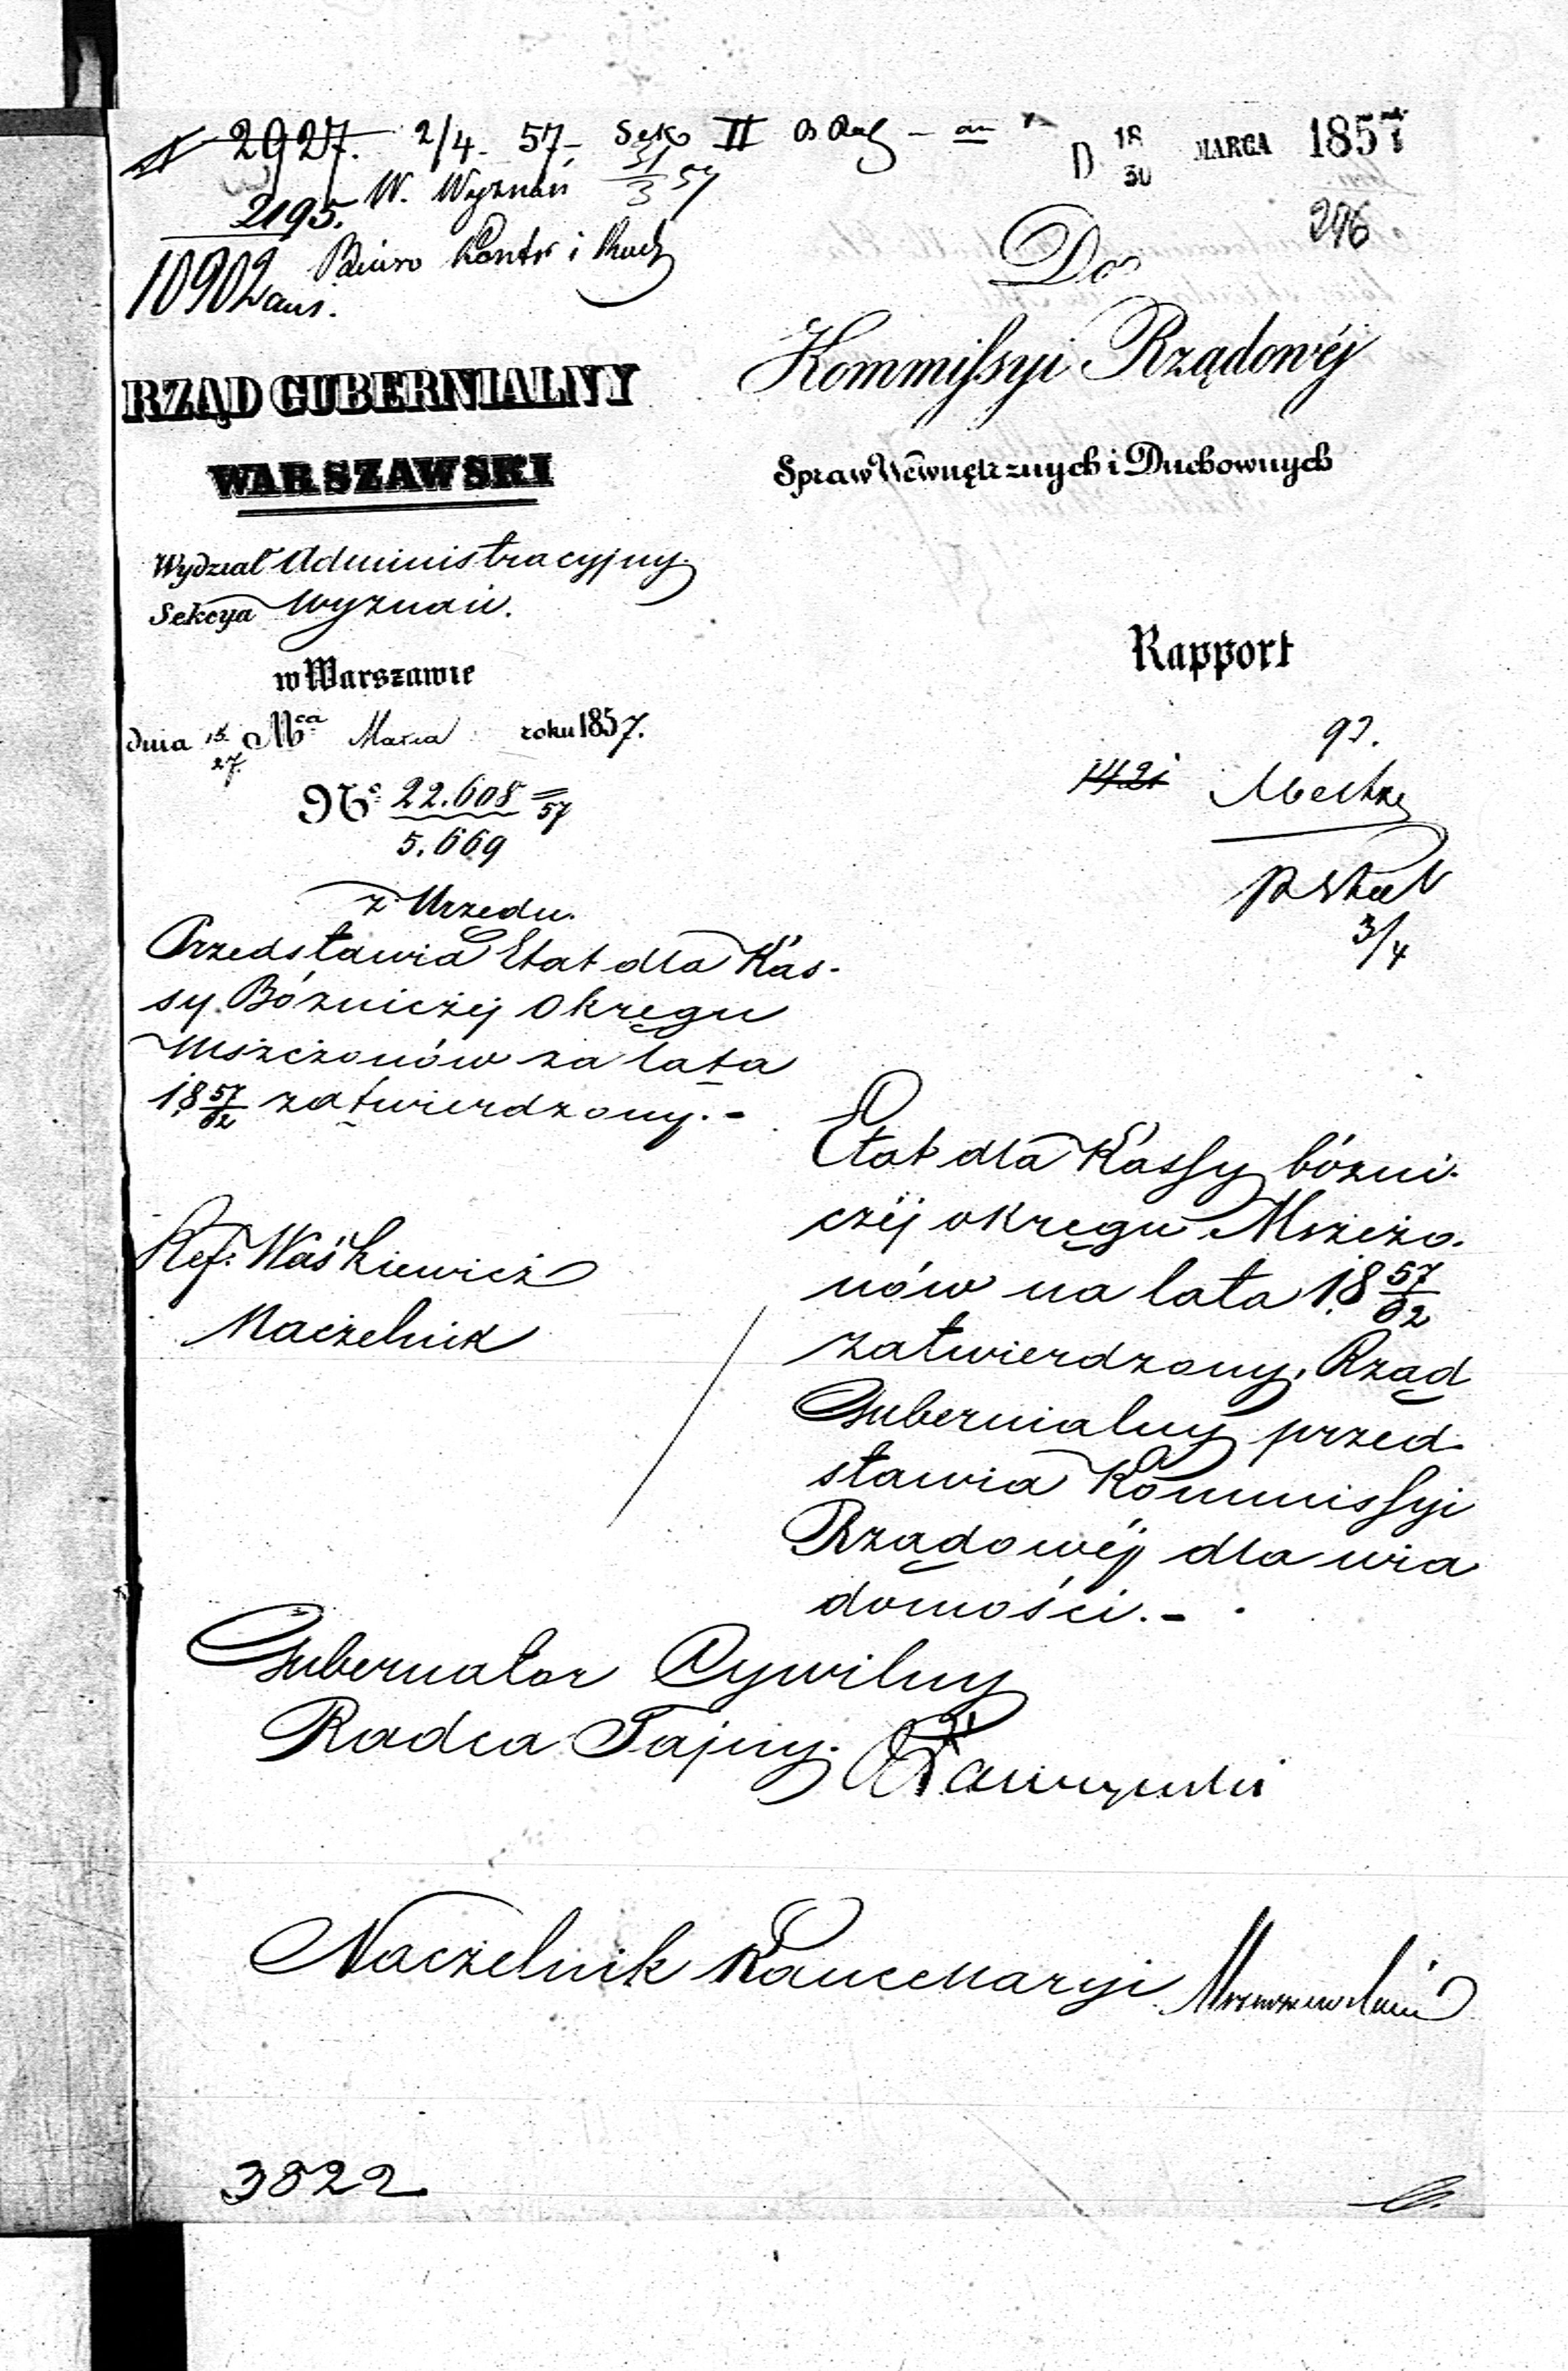 2927. 2/4 57. Sek. II
D 18/30 MARCA 1857
W. Wyznań 31/3 57
2195.
296
10902
Biuro Kontr i Rach
Do
Kommissyi Rządowéj
Spraw Wewnętrznych i Duchownych
RZĄD GUBERNIALNY
WARSZAWSKI
Wydział Administracyjny
Sekcya Wyznań.
w Warszawie
dnia 15/27 Mca Marca roku 1857.
No 22.608/5.669 = 57
Rapport
1421
3/4
z Urzędu.
Przedstawia Etat dla Kas-
sy Bóżniczéj Okręgu
Mszczonów za lata
18 57/62 zatwierdzony.-
Ref. Waśkiewicz
Naczelnik
Etat dla Kassy bóżni-
czéj okręgu Mszczo-
nów na lata 18 57/62
zatwierdzony, Rząd
Gubernialny przed-
stawia Kommissyi
Rządowéj dla wia
domości.-
Gubernator Cywilny
Radca Tajny.
Naczelnik Kancellaryi
3822